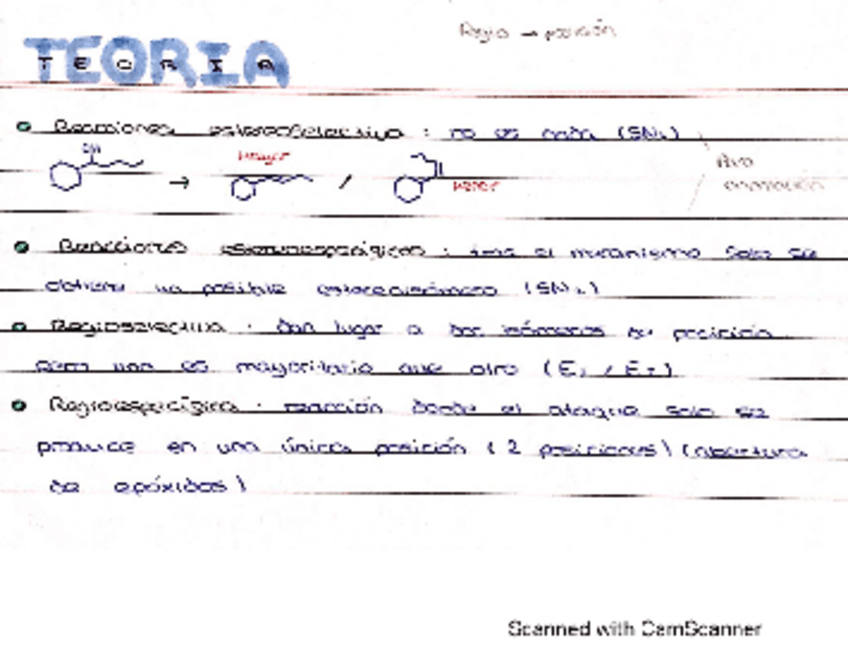 Regio → posición
TEORIA
TEORIA
Reacciones estereoselectiva : no es nada (SN1)
OH
Mayor
→ /
menor
Reacciones estereoespecíficas : tras el mecanismo solo se
obtiene un posible estereoisómero (SN2)
Regioselectiva : dan lugar a dos isómeros de posición
pero uno es mayoritario que otro (E1 / E2)
Regioespecífica : reacción donde el ataque solo se
produce en una única posición (2 posiciones) (apertura
de epóxidos)
Scanned with CamScanner